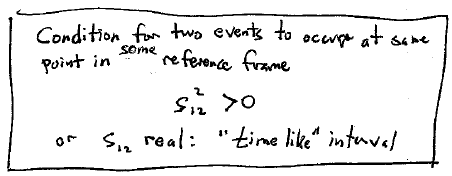 Condition for two events to occupy at same
point in some reference frame
S₁₂² >0
or S₁₂ real: "time like" interval